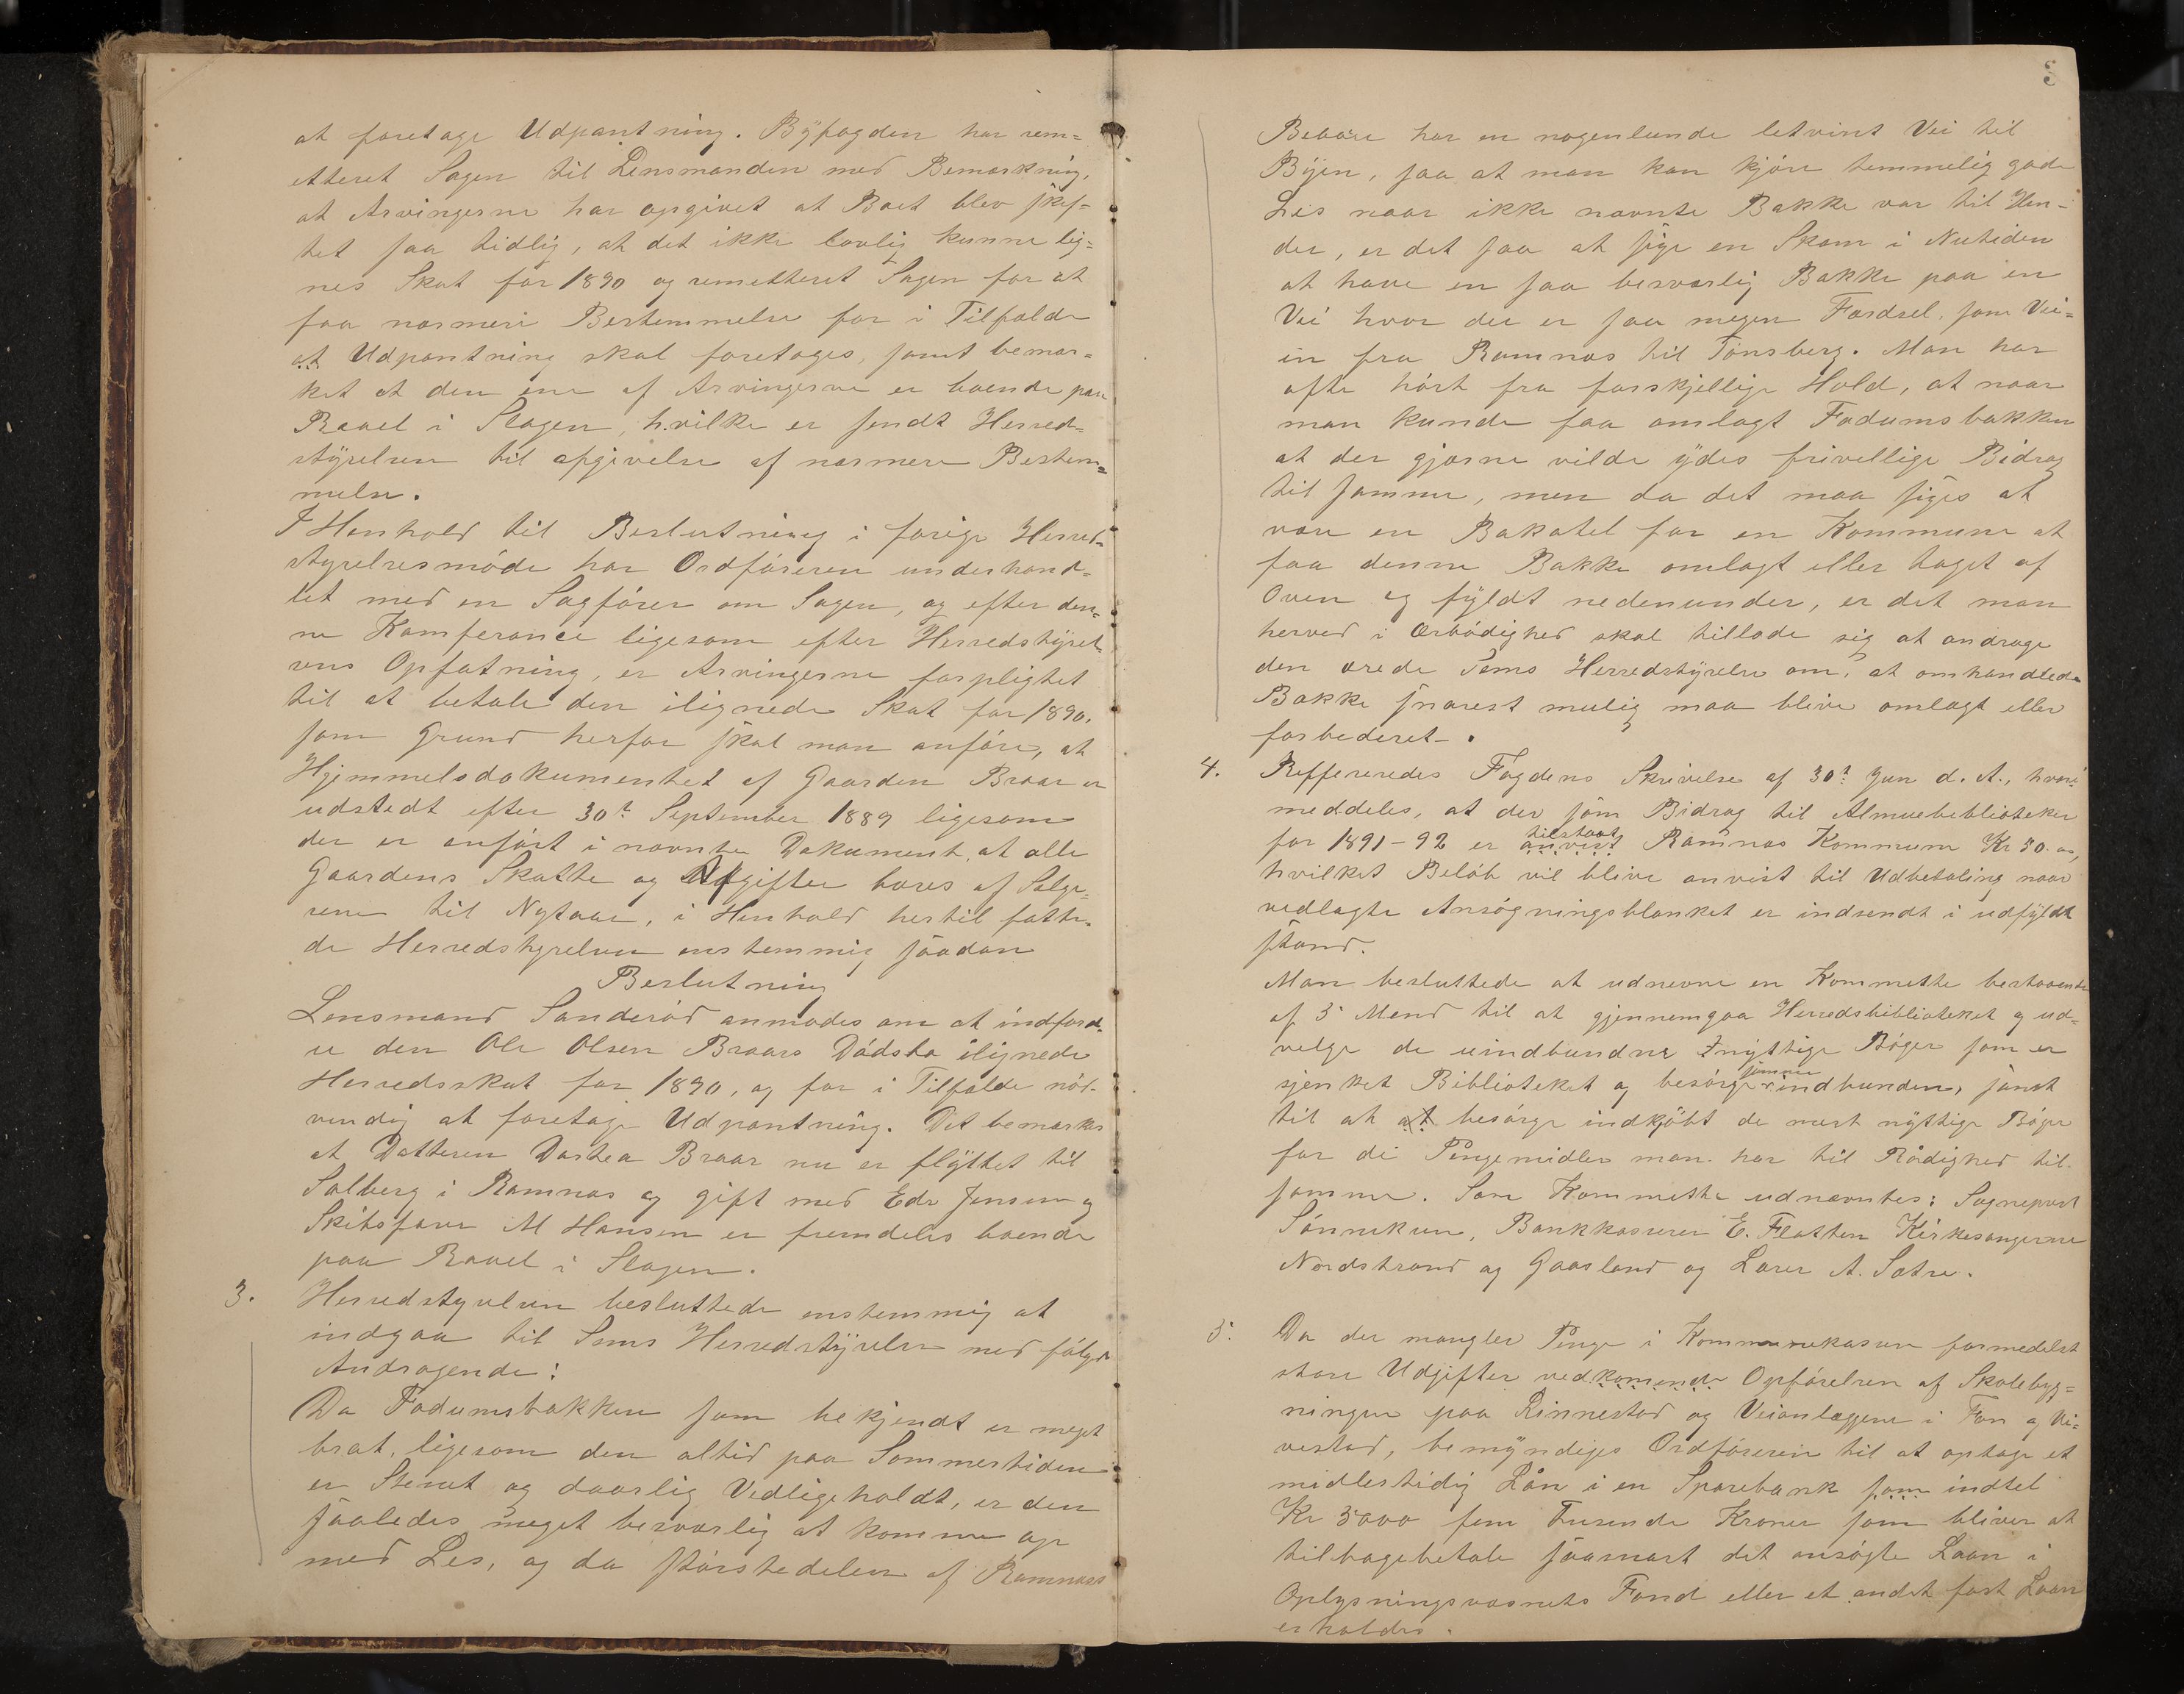 at foretage Udpantning. Byfogden har rem=
etteret Sagen til Lensmanden med Bemærkning,
at Arvingerne har opgivet at Boet blev skif-
tet saa tidlig, at det ikke lovlig kunne lig=
nes Skat for 1890 og remetteret Sagen for at
faa nærmere Bestemmelse for i Tilfælde
at Udpantning skal foretages, samt bemær=
ket at den ene af Arvingerne er boende paa
Ravel i Slagen, hvilke er sendt Herred=
styrelsen til afgivelse af nærmere Bestem=
melse.
I Henhold til Beslutning i forige Herred=
styrelsesmøde har Ordføreren underhand=
let med en Sagfører om Sagen, og efter den=
ne Kamferance ligesom efter Herredstyrel=
sens Opfatning, er Arvingerne forpligtet
til at betale den ilignede Skat for 1890.
som Grund herfor skal man anføre, at
Hjemmelsdokumentet af Gaarden Braar er
udstedt efter 30t September 1889 ligesom
der er anført i nævnte Dokument, at alle
Gaardens Skatte og Afgifter bæres af Sælge=
rene til Nytaar, i Henhold hertil fatte=
de Herredstyrelsen enstemmig saadan
Beslutning
Lensmand Sanderød anmodes om at indford=
re den Ole Olsen Braars Dødsbo ilignede
Herredsskat for 1890, og for i Tilfælde nød=
vendig at foretage Udpantning. Det bemærkes
at Datteren Dorthea Braar nu er flyttet til
Solberg i Ramnæs og gift med Edv Jensen og
Skibsfører M Hansen er fremdeles boende
paa Ravel i Slagen.
3. Herredstyrelsen besluttede enstemmig at
indgaa til Sems Herredstyrelse med følgde
Andragende:
Da Fadumsbakken som bekjendt er meget
brat, ligesom den altid paa Sommertiden
er Stenet og daarlig Vedligeholdt, er den
saaledes meget besværlig at komme op
med Les, og da størstedelen af Ramnæss
3
Beboere har en nogenlunde letvint Vei til
Byen, saa at man kan kjøre temmelig gode
Les naar ikke nævnte Bakke var til Hin=
der, er det saa at sige en Skam i Nutiden
at have en saa besværlig Bakke paa en
Vei hvor der er saa megen Færdsel, som Vei=
in fra Ramnæs til Tønsberg. Man har
ofte hørt fra forskjellige Hold, at naar
man kunde faa omlagt Fadumsbakken
at der gjærne vilde ydes frivellige Bidrag
til samme, men da det maa siges at
være en Bakatel for en Kommune at
faa denne Bakke omlagt eller taget af
Oven og fyldt nedenunder, er det man
herved i Ærbødighed skal tillade sig at andrage
den ærede Sems Herredstyrelse om, at omhandlede
Bakke snarest mulig maa blive omlagt eller
forbederet.
4. Reffereredes Fogdens Skrivelse af 30t Jun d. A., hvori
meddeles, at der som Bidrag til Almuebiblioteker
for 1891-92 er anvist tilstaat Ramnæs Kommune Kr 30.00,
hvilket Beløb vil blive anvist til Udbetaling naar
vedlagte Ansøgningsblanket er indsendt i udfyldt
stand.
Man besluttede at udnevne en Kommette bestaaende
af 5 Mend til at gjennemgaa Herredsbiblioteket og ud=
velge de uindbundne nyttige Bøger som er
sjenket Biblioteket og besørge samme indbunden, samt
til at at besørge indkjøbt de mest nyttige Bøger
for de Pengemidler man har til Raadighed til
samme. Som Kommette udnævntes: Sogneprest
Sønneken, Bankkasserer E. Flatten Kirkesangerne
Nordstrand og Gaasland og Lærer A. Sætre.
5. Da der mangler Penge i Kommunekassen formedelst
store Udgifter vedkomende Opførelsen af Skolebyg=
ningen paa Rinnestad og Veianlæggene i Fon og Vi=
vestad, bemyndiges Ordføreren til at optage et
midlertidig Lån i en Sparebank som indtel
Kr 5000 fem Tusende Kroner som bliver at
tilbagebetale saasnart det ansøgte Laan i
Oplysningsvæsnets Fond eller et andet fast Laan
erholdes.